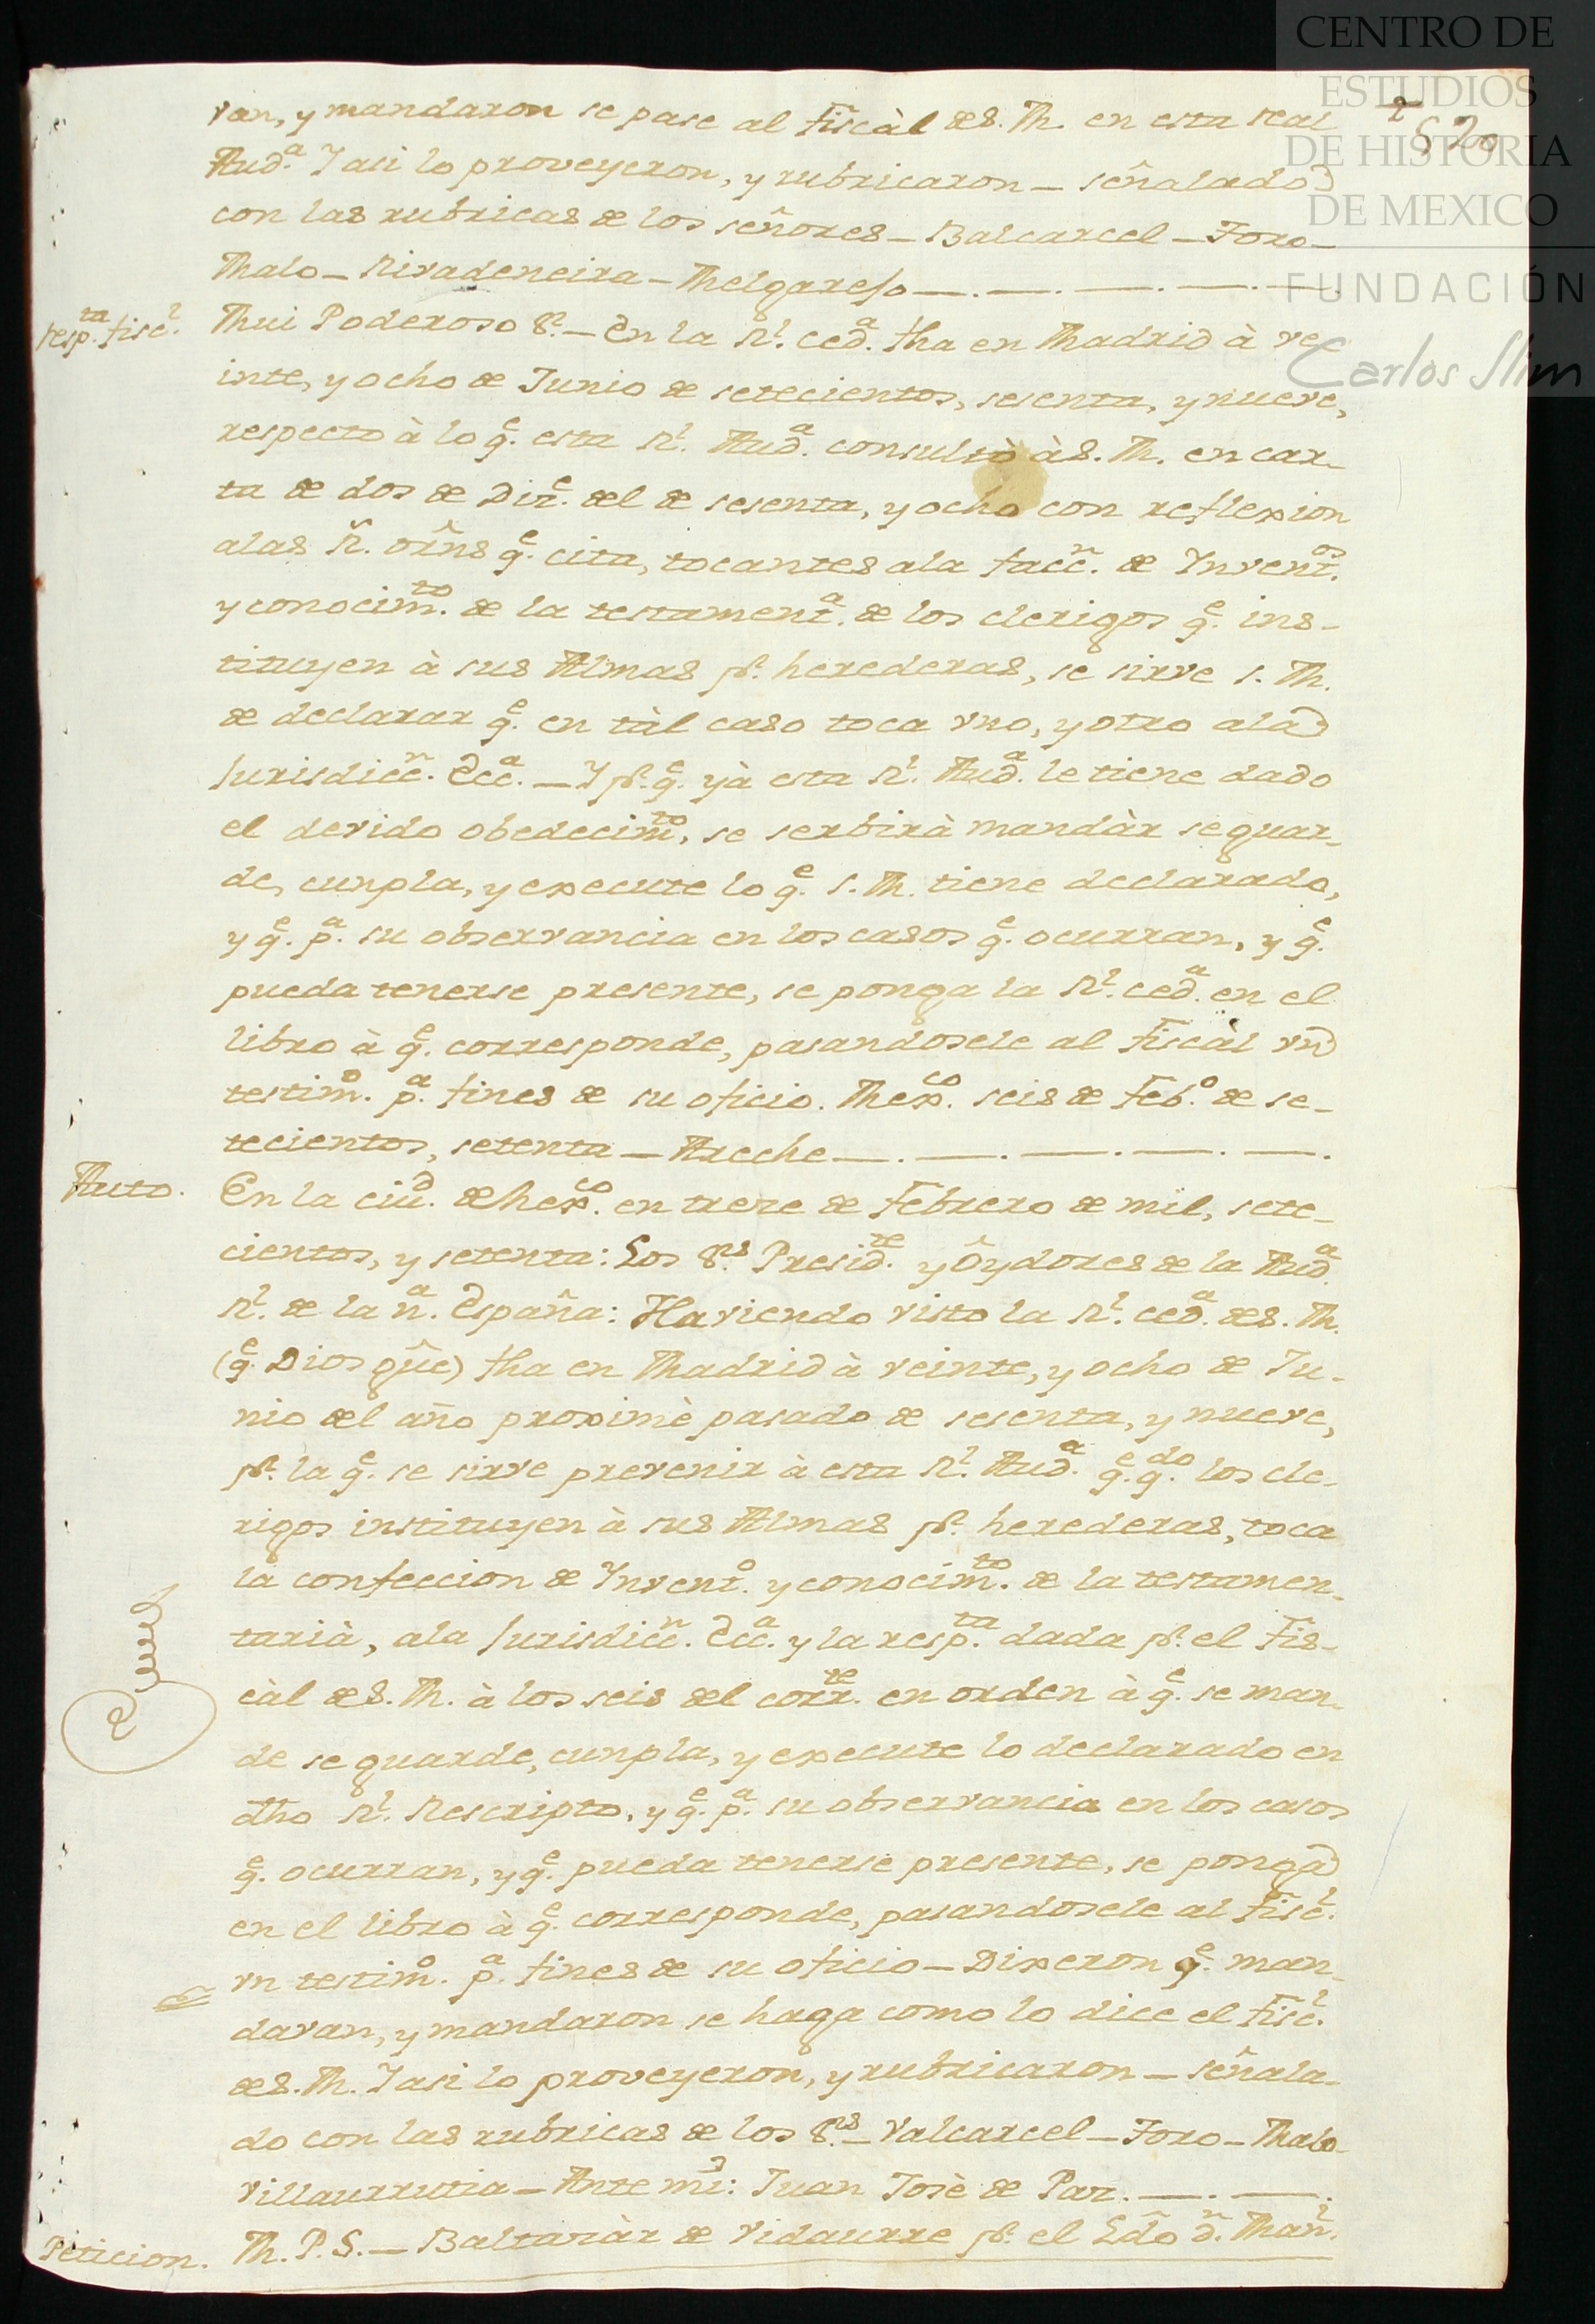 CENTRO DE
ESTUDIOS
DE HISTORIA
DE MEXICO
FUNDACIÓN
Carlos Slim
van, y mandaron se pase al Fiscàl de S. M. en esta Real
Aud.ª Y asi lo proveyeron, y rubricaron — señalado
con las rubricas de los señores — Balcarcel — Toro —
Malo — Rivadeneira — Melgarejo —.—.—.—.—.
resp.ta fisc.l
Mui Poderoso S.r — En la R.l ced.ª fha en Madrid à ve
inte, y ocho de Junio de setecientos, sesenta, y nueve,
respecto à lo q.e esta R.l Aud.ª consultò à S. M. en car-
ta de dos de Diz.e del de sesenta, y ocho con reflexion
alas R.s orñs q.e cita, tocantes ala facc.n de Ynvent.os
y conocim.to de la testament.ª de los clerigos q.e ins-
tituyen à sus Almas p.r herederas, se sirve S. M.
de declarar q.e en tàl caso toca vno, y otro ala
Jurisdicc.n Ecc.ª — Y p.r q.e yà esta R.l Aud.ª le tiene dado
el devido obedecim.to, se serbirà mandàr se guar-
de, cunpla, y execute lo q.e S. M. tiene declarado,
y q.e p.ª su observancia en los casos q.e ocurran, y q.e
pueda tenerse presente, se ponga la R.l ced.ª en el
libro à q.e corresponde, pasandosele al Fiscàl vn
testim.o p.ª fines de su oficio. Mex.co seis de Feb.o de se-
tecientos, setenta — Areche —.—.—.—.—.
Auto.
En la ciu.d de Mex.co en treze de Febrero de mil, sete-
cientos, y setenta: Los S.res Presid.te y Oydores de la Aud.ª
R.l de la n.ª España: Haviendo visto la R.l ced.ª de S. M.
(q.e Dios gûe) fha en Madrid à veinte, y ocho de Ju-
nio del año proximè pasado de sesenta, y nueve,
p.r la q.e se sirve prevenir à esta R.l Aud.ª q.e q.do los cle-
rigos instituyen à sus Almas p.r herederas, toca
la confeccion de Ynvent.o y conocim.to de la testamen-
tarià, ala Jurisdicc.n Ecc.ª y la resp.ta dada p.r el Fis-
càl de S. M. à los seis del corr.te en orden à q.e se man-
de se guarde, cunpla, y execute lo declarado en
dho R.l Rescripto, y q.e p.ª su observancia en los casos
q.e ocurran, y q.e pueda tenerse presente, se ponga
en el libro à q.e corresponde, pasandosele al Fisc.l
vn testim.o p.ª fines de su oficio — Dixeron q.e man-
davan, y mandaron se haga como lo dice el Fisc.l
de S. M. Y asi lo proveyeron, y rubricaron — señala-
do con las rubricas de los S.res — Valcarcel — Toro — Malo
Villaurrutia — Ante mi: Juan Josè de Paz.—.—.
Peticion.
M. P. S. — Baltazàr de Vidaurre p.r el Lđo đ.n Man.l